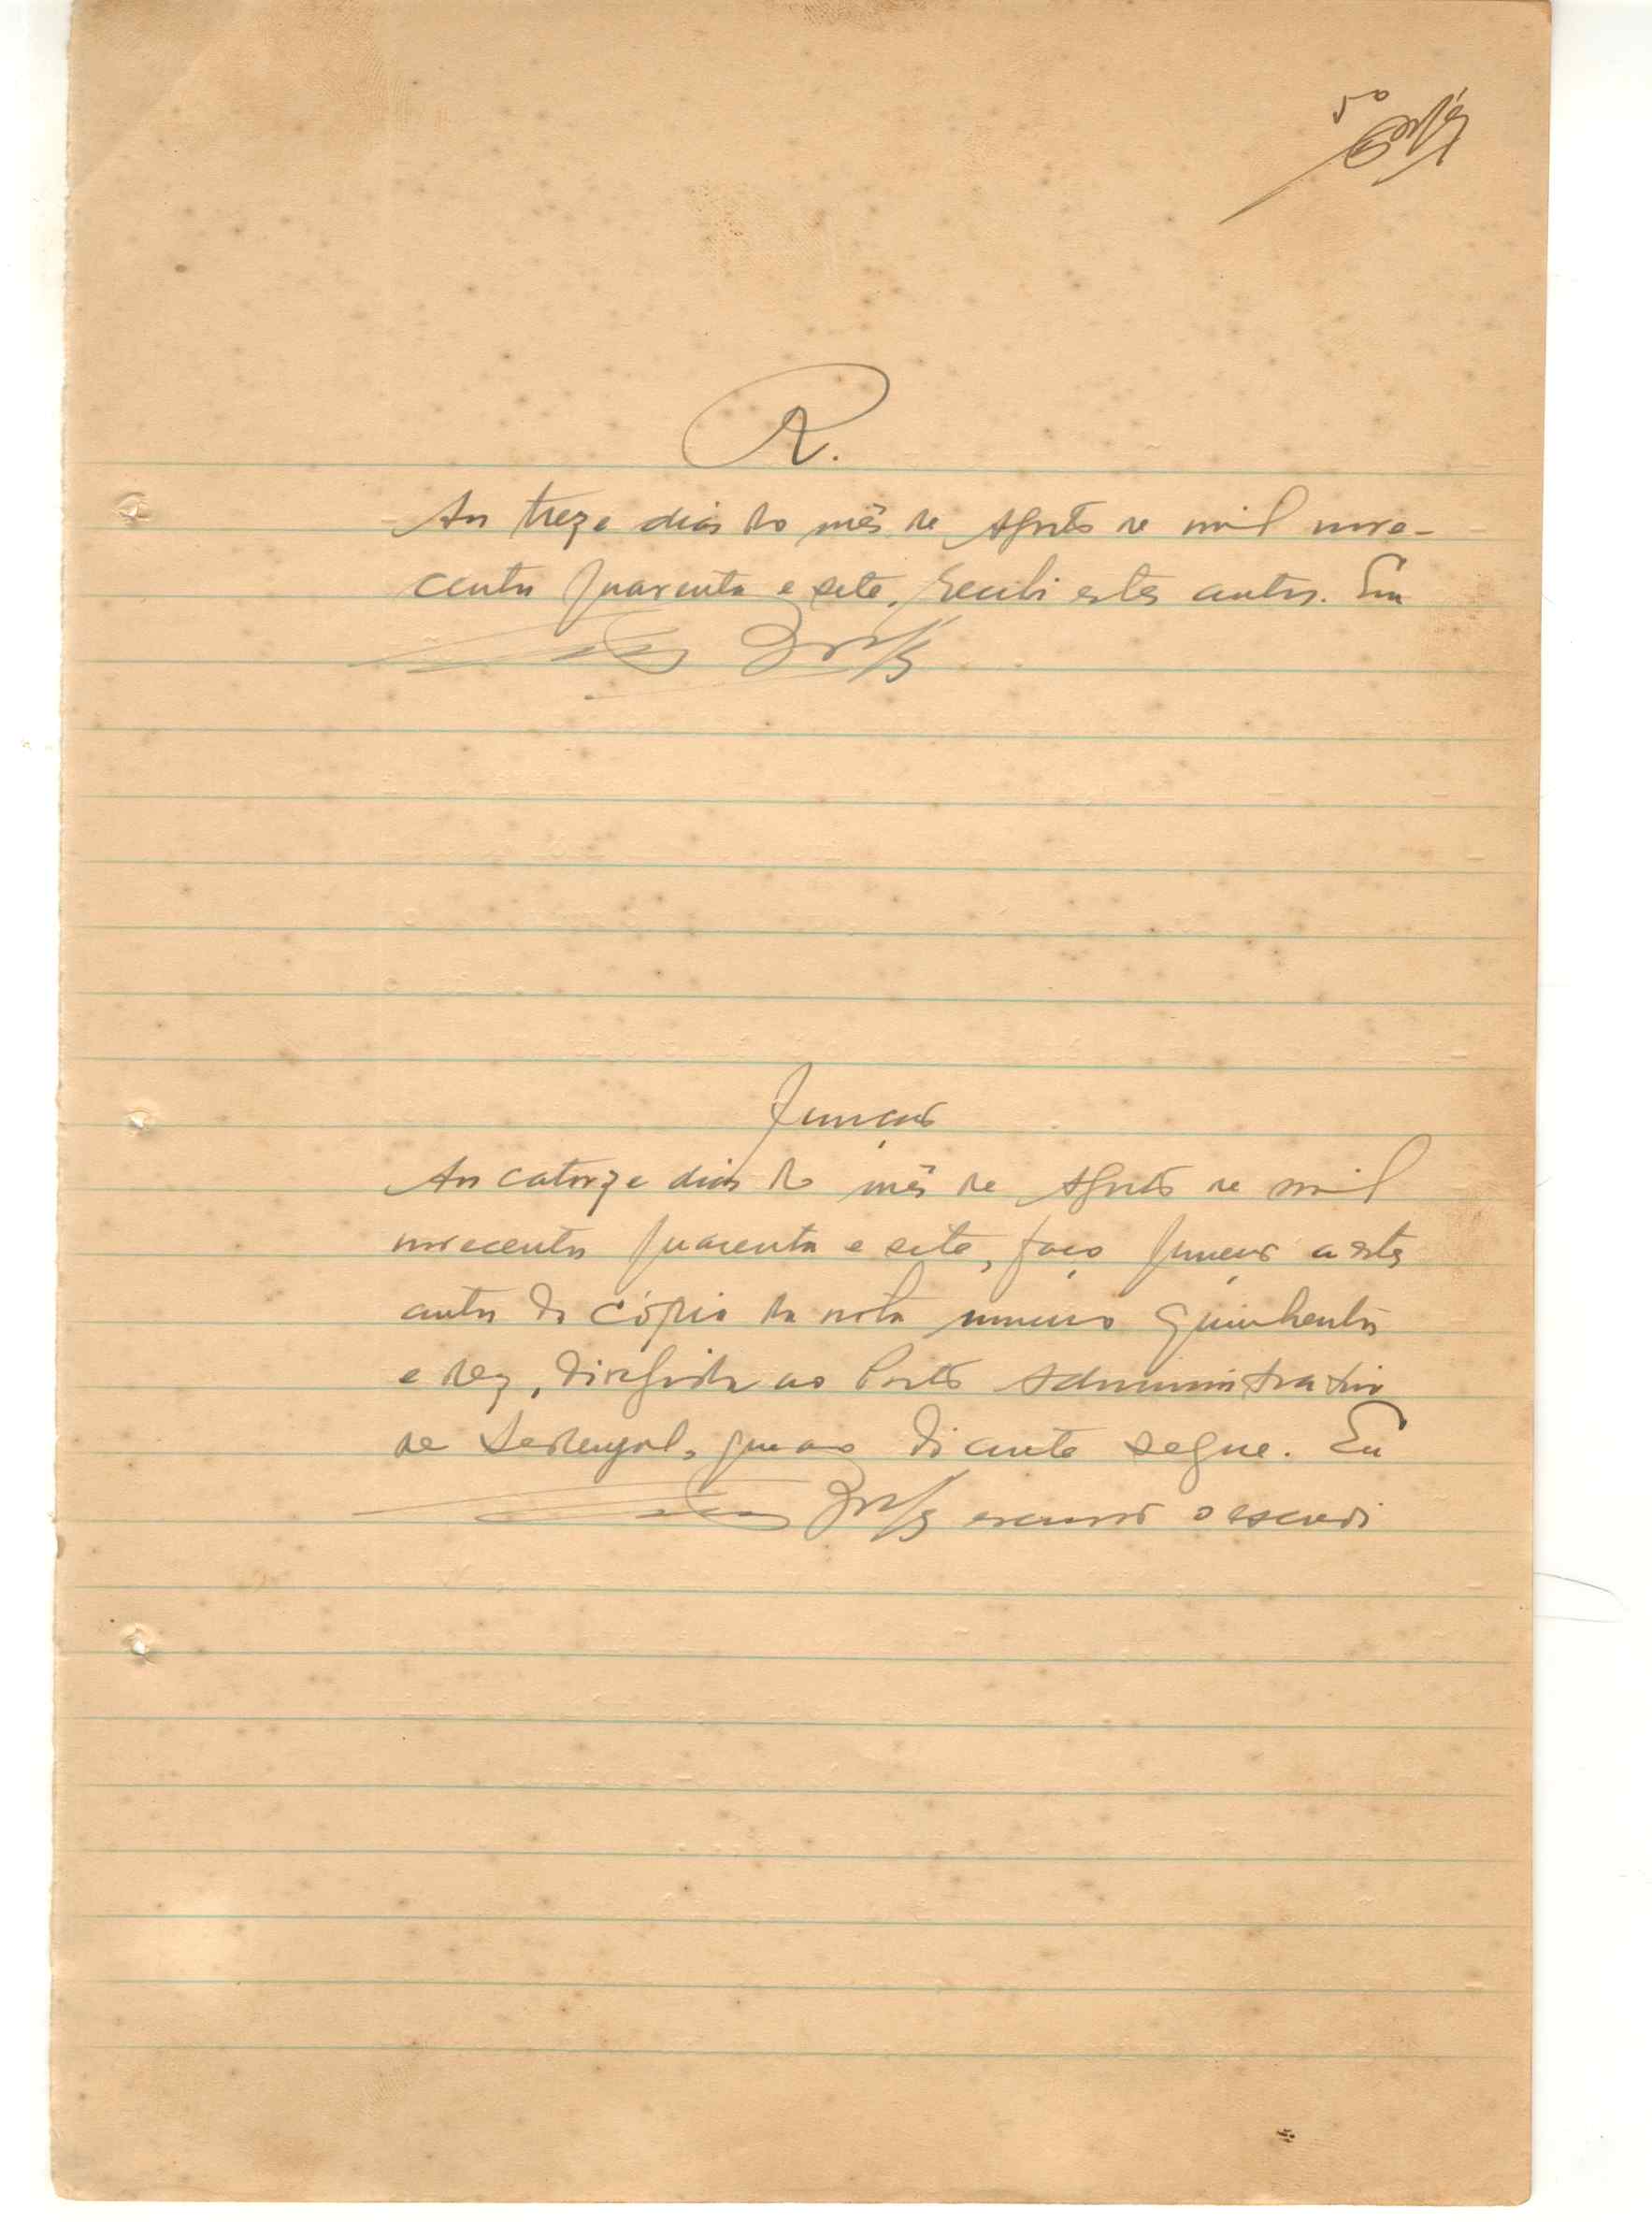 R.
Aos treze dias do mês de Agosto de mil nove-
centos quarenta e sete, recebi estes autos. Eu
Junção
Aos catorze dias do mês de Agosto de mil
novecentos quarenta e sete, faço junção a estes
autos da cópia da nota número quinhentos
e dez, dirigida ao Posto Administrativo
de que ao diante segue. Eu
escrivão o escrevi